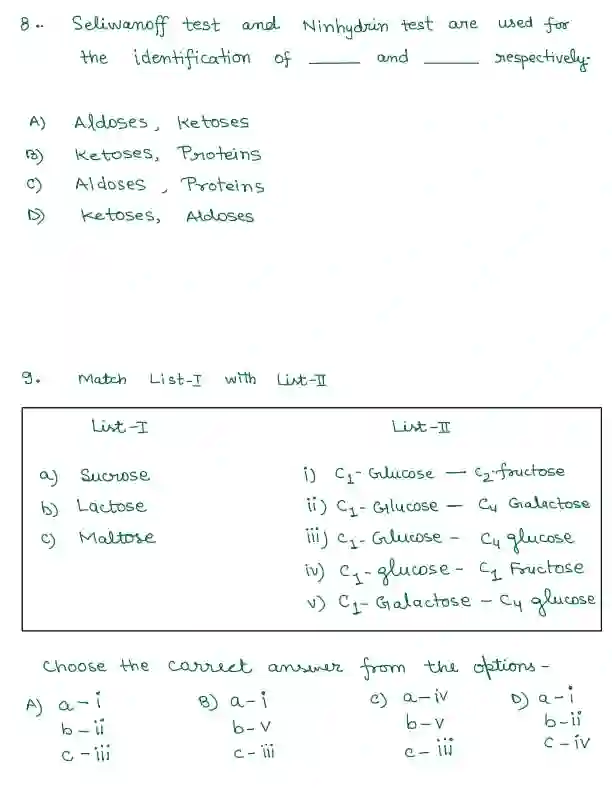 8.. Seliwanoff test and Ninhydrin test are used for
the identification of ____ and ____ respectively.
A) Aldoses, Ketoses
B) Ketoses, Proteins
C) Aldoses, Proteins
D) Ketoses, Aldoses
9. Match List-I with List-II
List-I List-II
a) Sucrose i) C1-Glucose — C2-fructose
b) Lactose ii) C1-Glucose — C4 Galactose
c) Maltose iii) C1-Glucose - C4 glucose
iv) C1-glucose - C1 Fructose
v) C1-Galactose - C4 glucose
Choose the correct answer from the options -
A) a-i B) a-i C) a-iv D) a-i
b-ii b-v b-v b-ii
c-iii c-iii c-iii c-iv